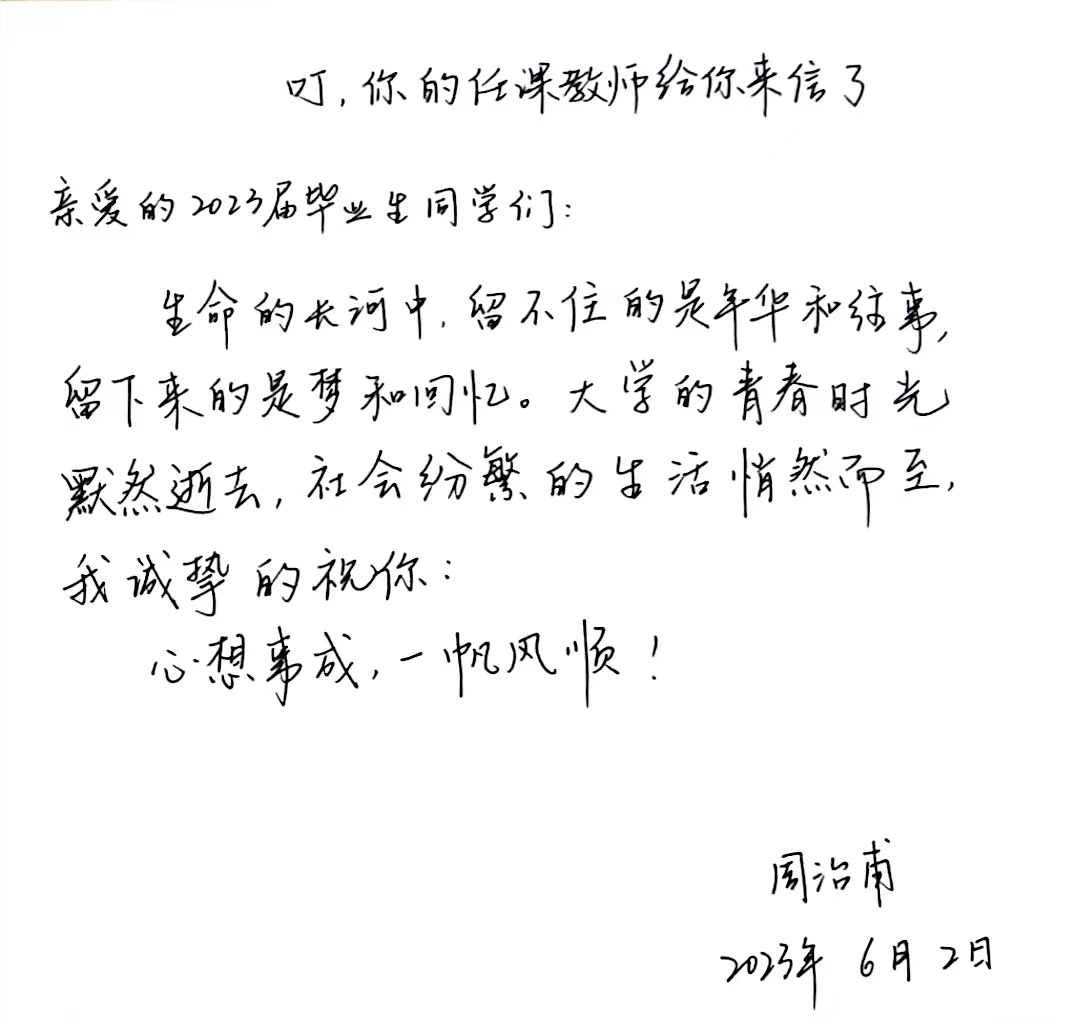 叮,你的任课教师给你来信了
亲爱的2023届毕业生同学们:
生命的长河中,留不住的是年华和往事,
留下来的是梦和回忆。大学的青春时光
默然逝去,社会纷繁的生活悄然而至,
我诚挚的祝你:
心想事成,一帆风顺!
周治甫
2023年 6月 2日